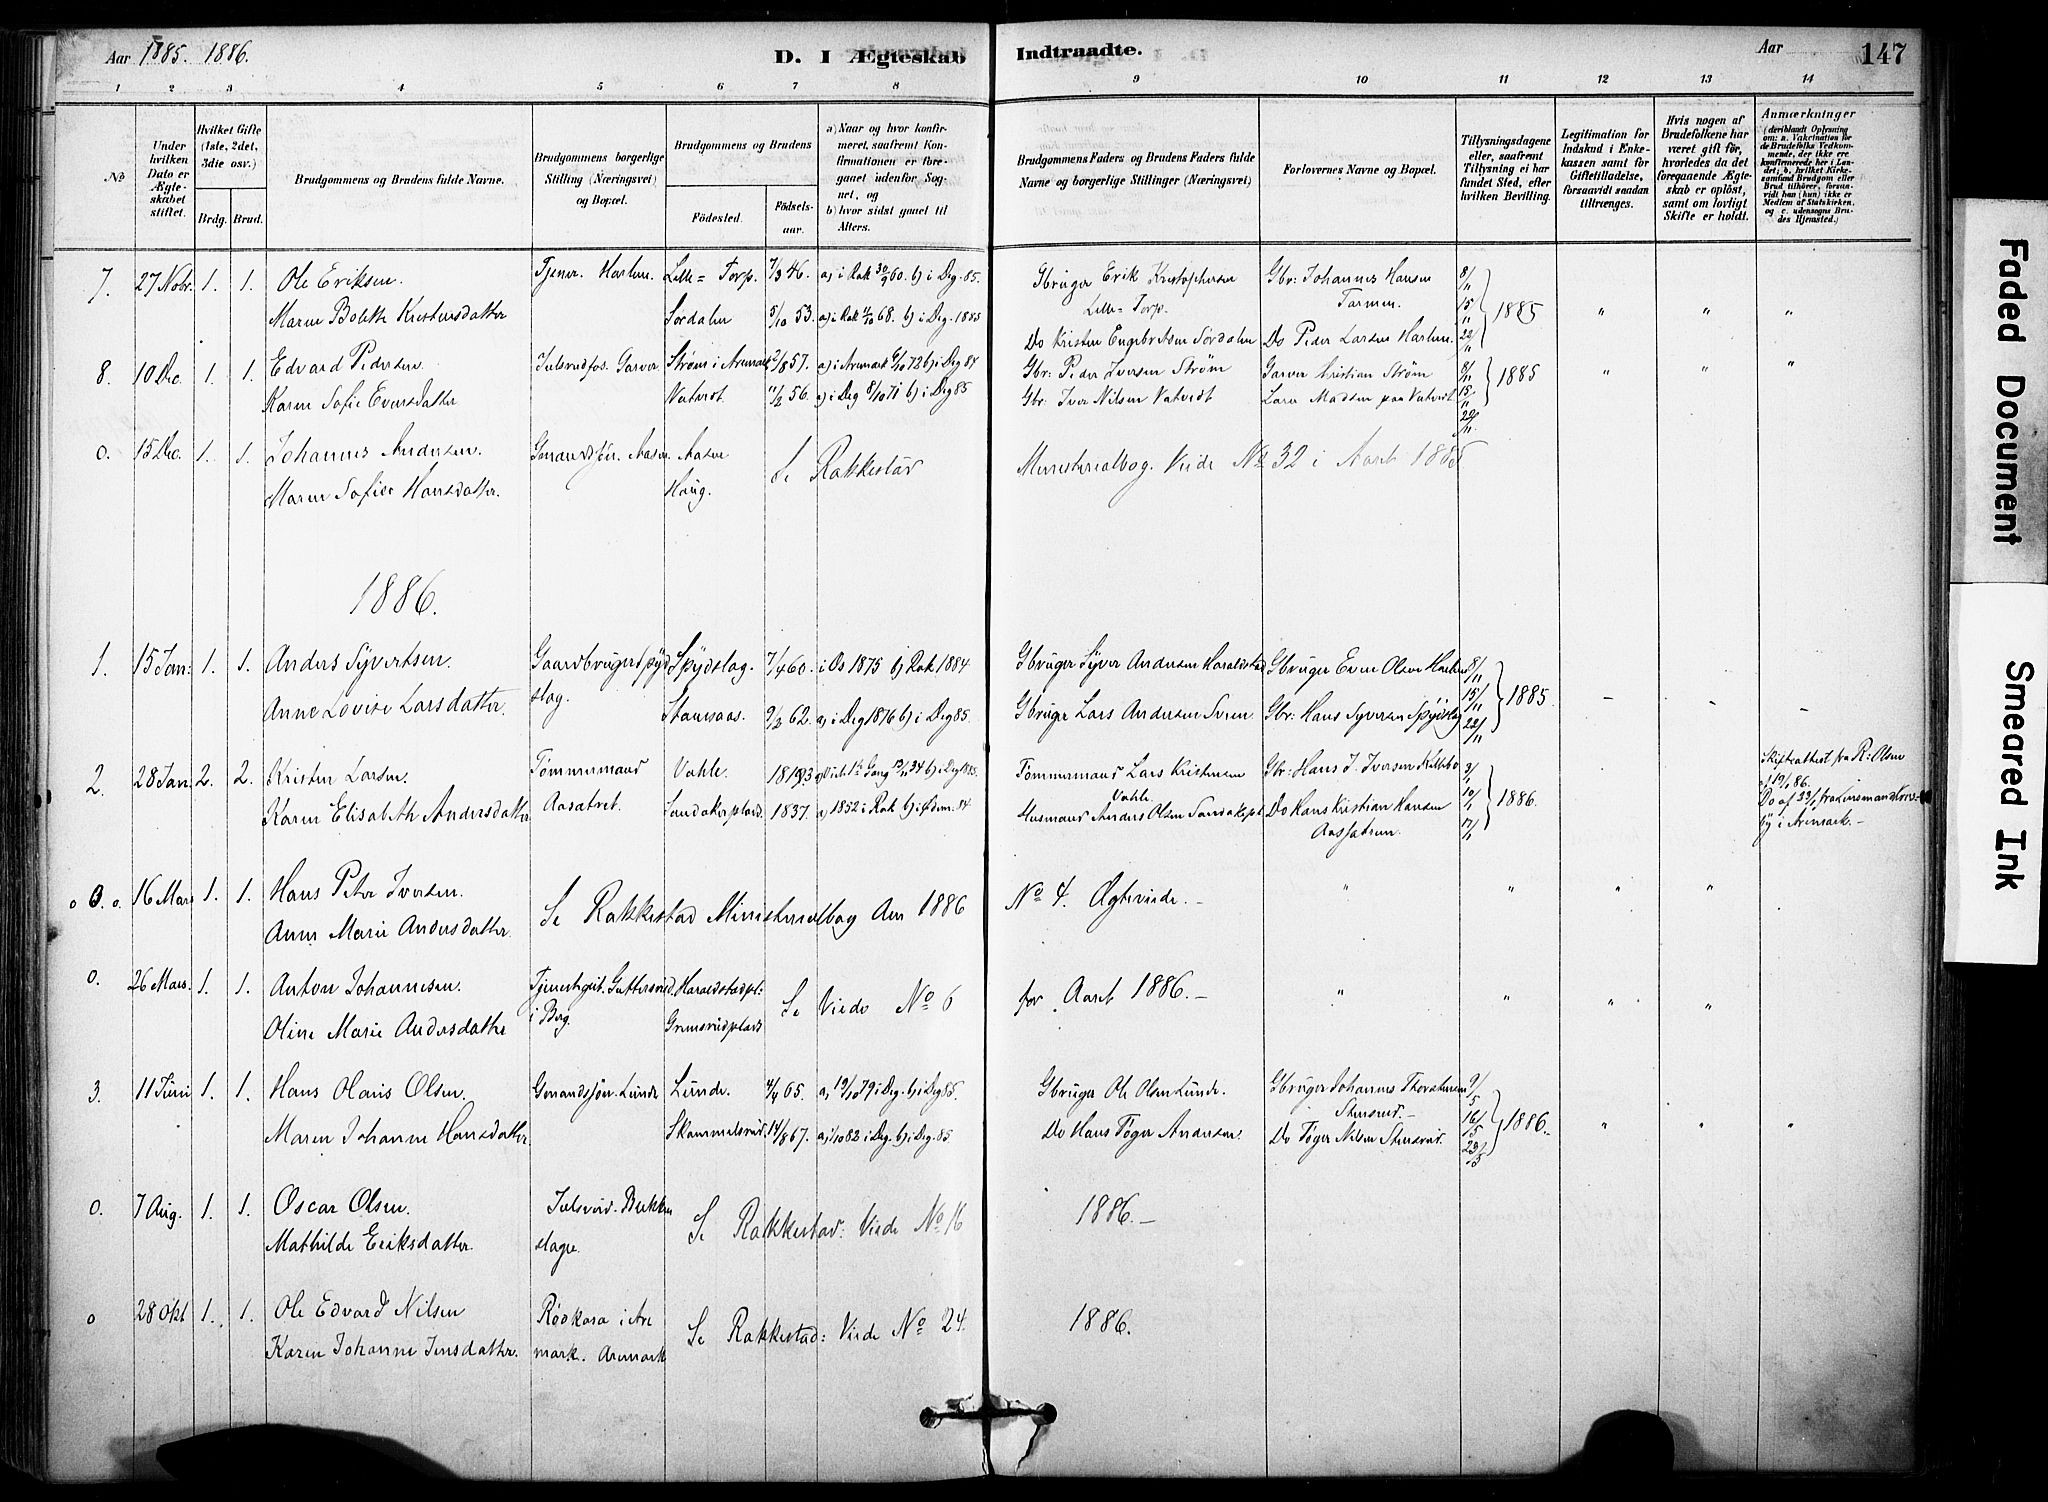 Aar 1885. 1886.
D. I Ægteskab Indtraadte.
Aar 147
1 2 3 4 5 6 7 8 9 10 11 12 13 14
No
Under hvilken Dato er Ægteskabet stiftet.
Hvilket Gifte (1ste, 2det, 3die osv.)
Brdg. Brud.
Brudgommens og Brudens fulde Navne.
Brudgommens borgerlige Stilling (Næringsvei) og Bopæl.
Brudgommens og Brudens
Fødested. Fødselsaar.
a) Naar og hvor konfirmeret, saafremt Konfirmationen er foregaaet udenfor Sognet, og
b) hvor sidst gaaet til Alters.
Brudgommens Faders og Brudens Faders fulde Navne og borgerlige Stillinger (Næringsvei)
Forlovernes Navne og Bopæl.
Tillysningsdagene eller, saafremt Tillysning ei har fundet Sted, efter hvilken Bevilling.
Legitimation for Indskud i Enkekassen samt for Giftetilladelse, forsaavidt saadan tiltrænges.
Hvis nogen af Brudefolkene har været gift før, hvorledes da det foregaaende Ægteskab er opløst, samt om lovligt Skifte er holdt.
Anmærkninger
(deriblandt Oplysning om: a. Vakcination for de Brudefolks Vedkommende, der ikke ere konfirmerede her i Landet; b. hvilket Kirkesamfund Brudgom eller Brud tilhører, forsaavidt han (hun) ikke er Medlem af Statskirken, og c. udensogns Brudes Hjemsted.)
7. 27 Nobr. 1. 1. Ole Eriksen. Tjener. Harlem. Lille-Torp. 7/3 46. a) i Rak 30/9 60. b) i Deg. 85. Gbruger Erik Kristophersen Lille-Torp. Gbr: Johannes Hansen 8/11 15/11 22/11 1885 " " "
Maren Bolette Kristensdatter Sørdalen 5/10 53. a) i Rak 68. b) i Deg. 1885 Do Kristen Engebretsen Sørdalen Do Peder Larsen Harlem.
8. 10 Dec. 1. 1. Edvard Pedersen. Julsrudfos. Garver. Strøm i Aremark 2/8 57. a) i Aremark 6/10 72 b) i Deg 84 Gbr: Peder Iversen Strøm Garver Kristian Strøm 8/11 15/11 22/11 1885 " " "
Karen Sofie Eversdatter Vatvedt. 56. a) i Deg 8/10 71 b) i Deg 85 Gbr: Iver Nilsen Vatvedt Lars Madsen paa Vatvedt
0. 15 Dec. 1. 1. Johannes Andersen. Aasen Se Rakkestad Ministerialbog. Viede No 32 i Aaret 1885
Maren Sofie Hansdatter. Haug.
1886.
1. 15 Jan: 1. 1. Anders Syvertsen. Gaardbruger Spydslag. Spydslag. 7/4 60. i Os 1875 b) Rak 1884 Gbruger Syver Andersen Haraldstad Gbruger Even Olsen Harlem 8/11 15/11 22/11 1885 - - -
Anne Lovise Larsdatter. 9/2 62. a) i Deg 1876 b) i Deg 85. Gbruger Lars Andersen Gbr: Hans Syversen Spydslag
2. 28 Jan. 2. 2. Kristen Larsen. Tømmermand Aasætret. Vahle. 1813. Tømmermand Lars Kristensen Vahle Gbr: Hans J. Iversen 3/1 10/1 17/1 1886. Skifteattest fra R. Olsen af 19/1 86.
Karen Elisabeth Andersdatter. Sandakerplads. 1837. a) 1852 i Rak b) i Ødem. 84 Husmand Anders Olsen Sandakerpl. Do Hans Kristian Hansen Aassætren. i Aremark.-
o 0. o. 16 Mars 1. 1. Hans Peter Iversen. Se Rakkestad Ministerialbog Aar 1886 No 4. Ægteviede.- " " " "
Anne Marie Andersdatter.
0. 26 Mars. 1. 1. Anton Johannesen. Tjenestegut. i Berg. Haraldstadpl: Se Viede No 6 for Aaret 1886.- " " " "
Oline Marie Andersdatter Grimsrudplads
3. 11 Juni 1. 1. Hans Olaus Olsen. Gmandssøn. Lunde Lunde. 4/4 65. a) 19/10 79 i Deg. b) i Deg 85. Gbruger Ole Olsen Lunde. Gbruger Johannes Thorstensen Stensrud.- 9/5 16/5 23/5 1886. " " "
Maren Johanne Hansdatter. Skammelsrud. 14/8 67. a) 1/10 82 i Deg. b) i Deg. 85. Do Hans Tøger Andersen. Do Tøger Nilsen Stensrud.
0. 7 Aug. 1. 1. Oscar Olsen. Julsrud. Bukkeslagre. Se Rakkestad: Viede No 16 1886.-
Mathilde Eriksdatter.
0 28 Okt 1. 1. Ole Edvard Nilsen i Aremark. Aremark Se Rakkestad: Viede No 24. 1886.
Karen Johanne Jensdatter.
Faded Document
Smeared Ink